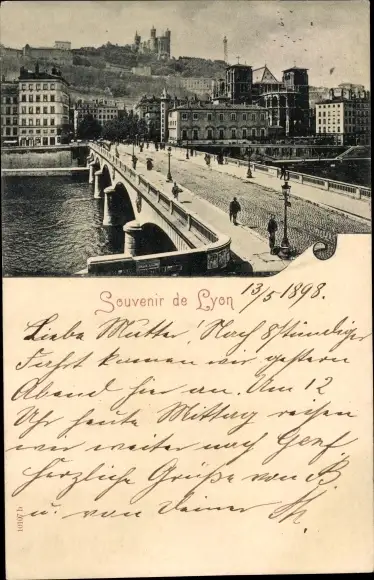 Souvenir de Lyon 13/5 1898.
Liebe Mutter! Nach 8stündiger
Fahrt kamen wir gestern
Abend hier an. Um 12
Uhr heute Mittag reisen
wir weiter nach Genf.
Herzliche Grüße von B.
u. von Deiner